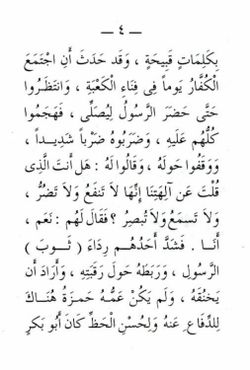 — ٤ —
بِكَلِمَاتٍ قَبِيحَةٍ ، وَقَد حَدَثَ أَنِ اجْتَمَعَ
الكُفَّارُ يَوماً فِي فِنَاءِ الْكَعْبَةِ ، وَانتَظَرُوا
حَتَّى حَضَرَ الرَّسُولُ لِيُصَلِّي ، فَهَجَمُوا
كُلُّهُم عَلَيهِ ، وَضَرَبُوهُ ضَرْباً شَدِيداً ،
وَوَقَفُوا حَولَهُ ، وَقَالُوا لَهُ : هَل أَنتَ الَّذِى
قُلْتَ عَن آلِهَتِنَا إِنَّهَا لاَ تَنفَعُ وَلاَ تَضُرُّ ،
وَلاَ تَسمَعُ وَلاَ تُبصِرُ ؟ فَقَالَ لَهُم : نَعَم ،
أَنَا . فَشَدَّ أَحَدُهُم رِدَاءَ ( ثَوبَ )
الرَّسُولِ ، وَرَبَطَهُ حَولَ رَقَبَتِهِ ، وَأَرَادَ أَن
يَخنُقَهُ ، وَلَم يَكُنْ عَمُّهُ حَمزَةُ هُنَاكَ
لِلدِّفَاعِ عَنهُ وَلِحُسْنِ الْحَظِّ كَانَ أَبُو بَكرٍ